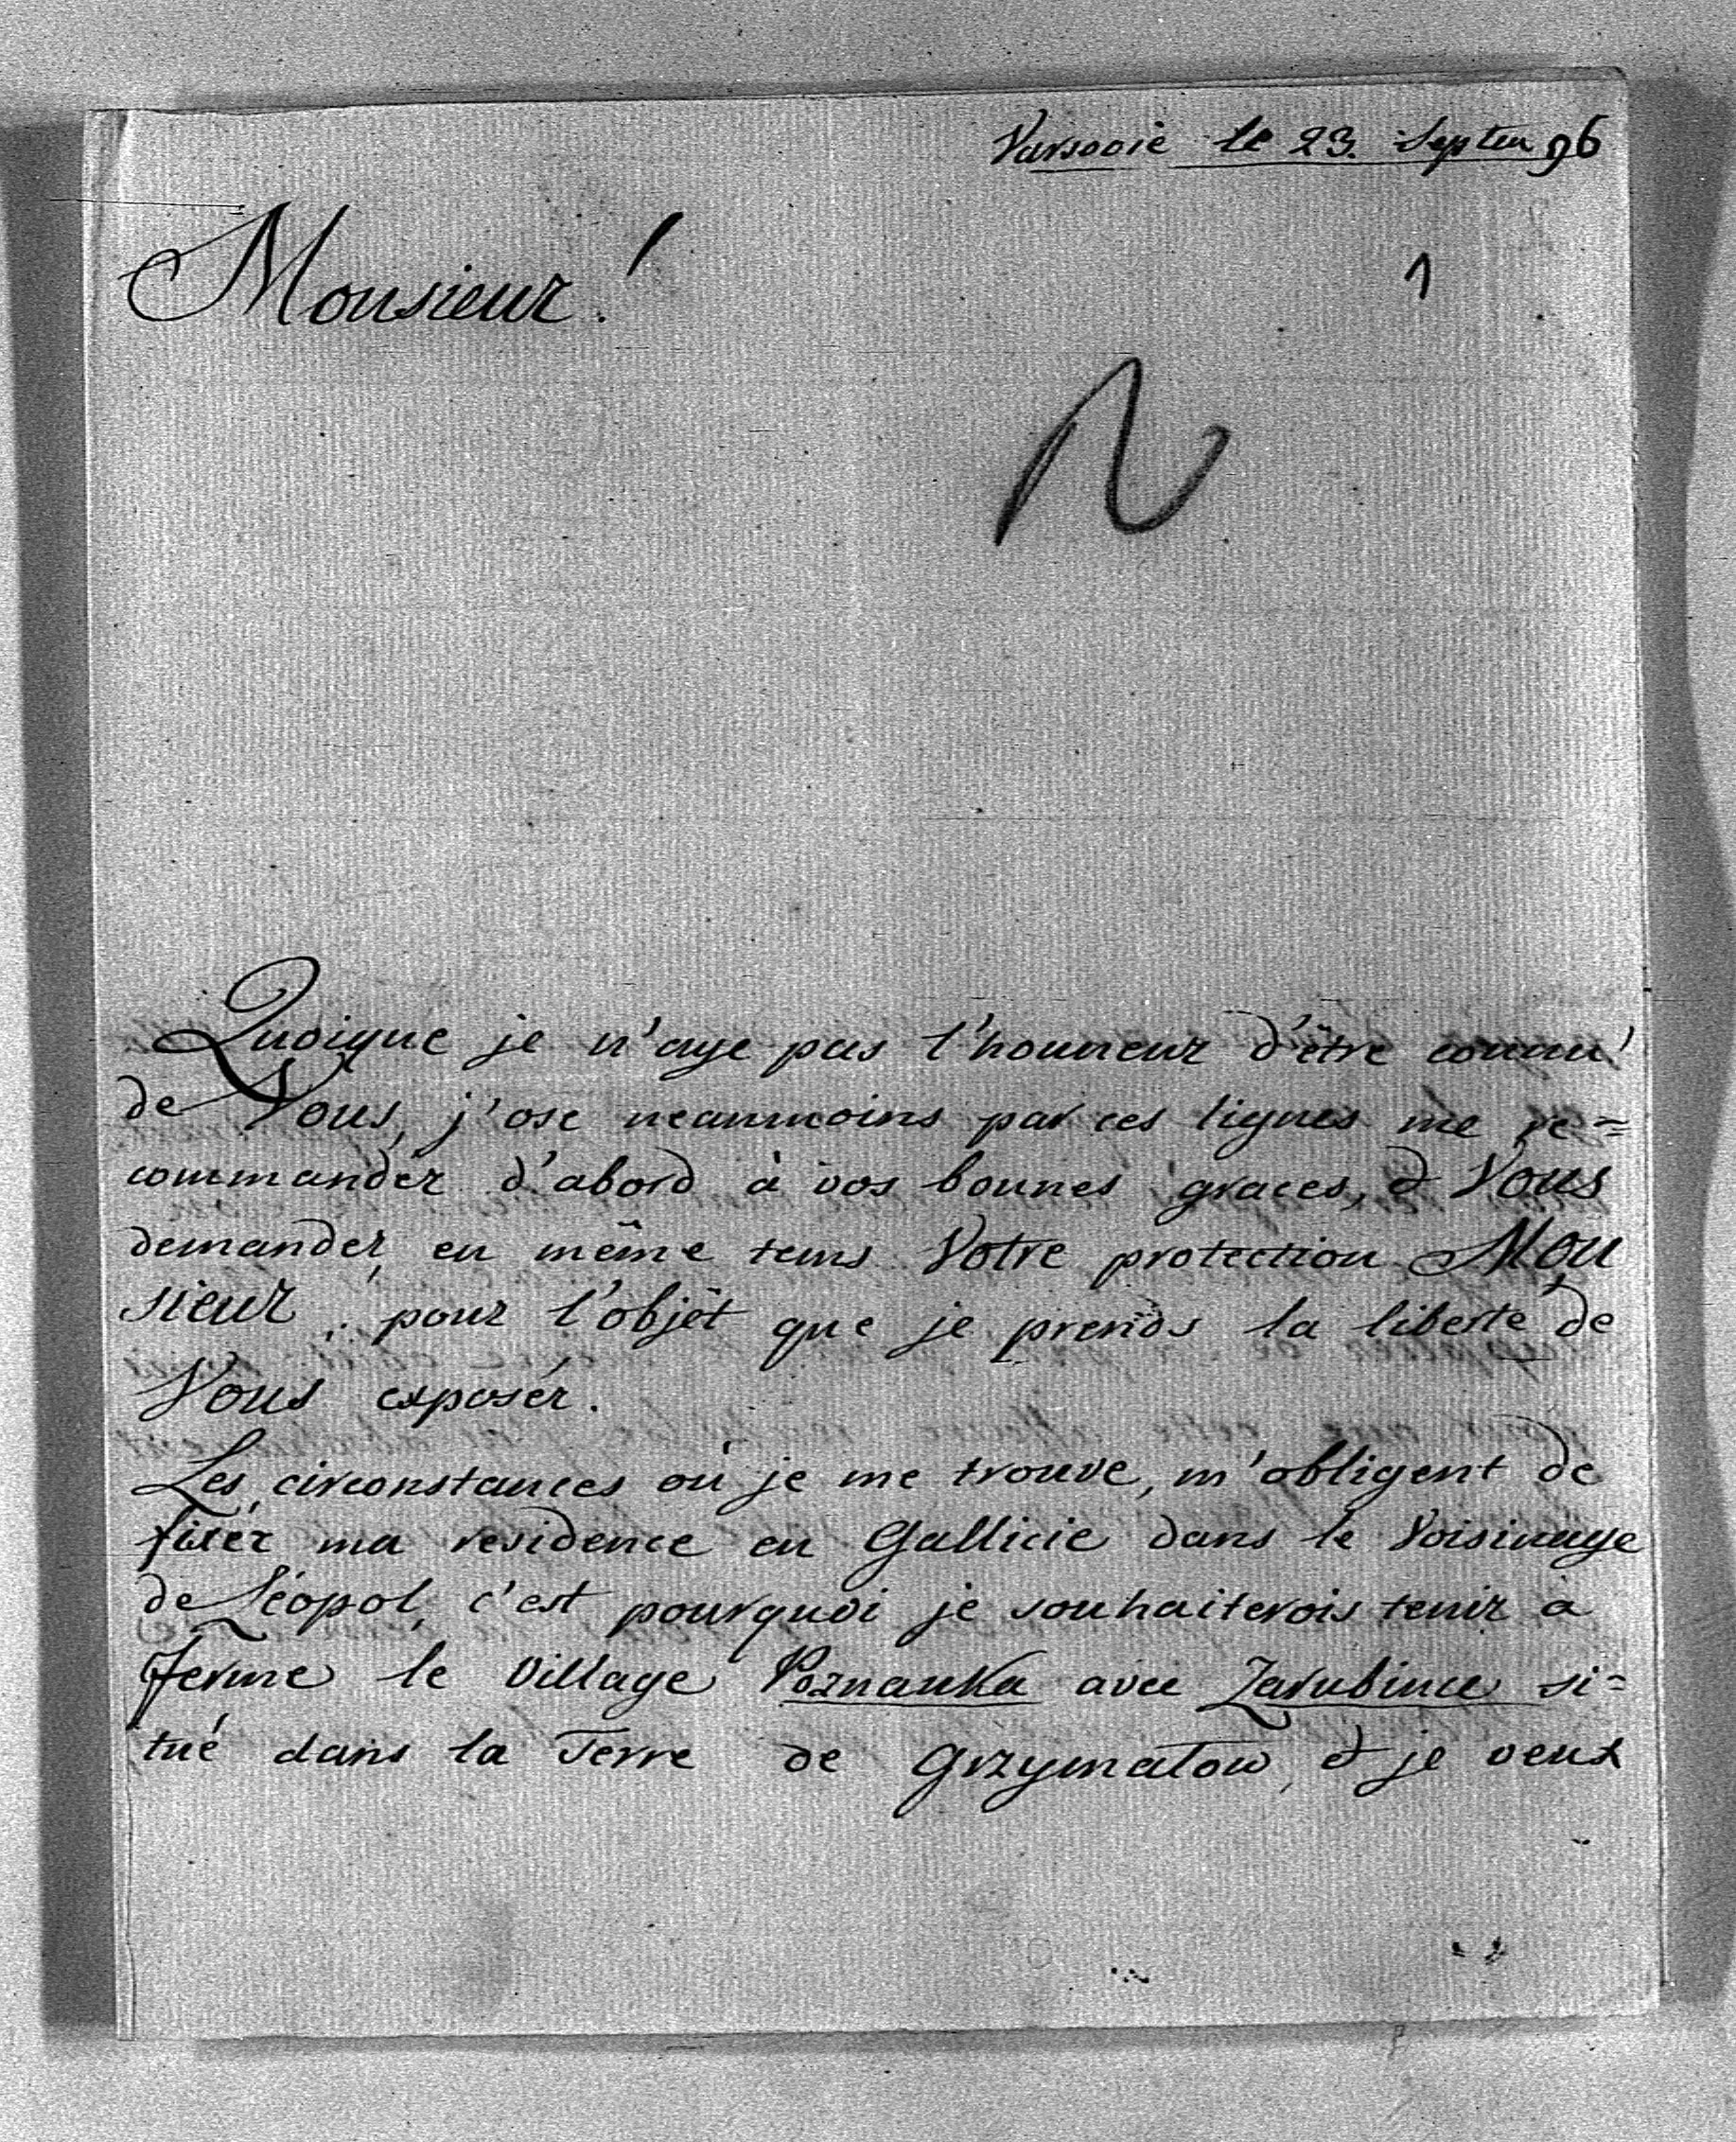 Varsovie le 23. Septem 96
Monsieur!
1
Quoique je n'aye pas l'honneur d'être connu
de Vous, j'ose neanmoins par ces lignes me re=
commandér d'abord à vos bonnes graces, & Vous
demandér en même tems Votre protection Mon
sieur, pour l'objèt que je prends la liberté de
Vous exposér.
Les circonstances où je me trouve, m'obligent de
fixér ma residence en Gallicie dans le Voisinage
de Léopol, c'est pourquoi je souhaiterois tenir à
ferme le Village Poznanka avec Zarubince si=
tué dans la Terre de Grzymałow, & je veux